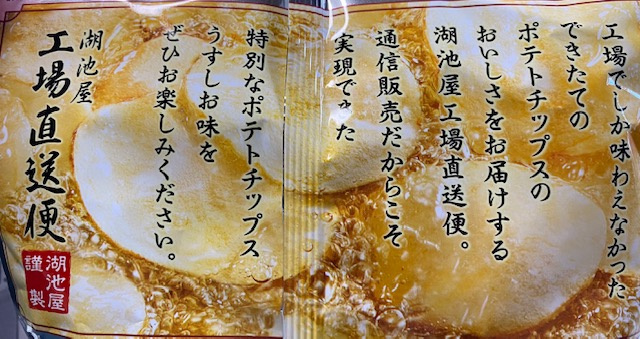 工場でしか味わえなかった
できたての
ポテトチップスの
おいしさをお届けする
湖池屋工場直送便。
通信販売だからこそ
実現できた
特別なポテトチップス
うすしお味を
ぜひお楽しみください。
湖池屋
工場直送便
湖池屋
謹製